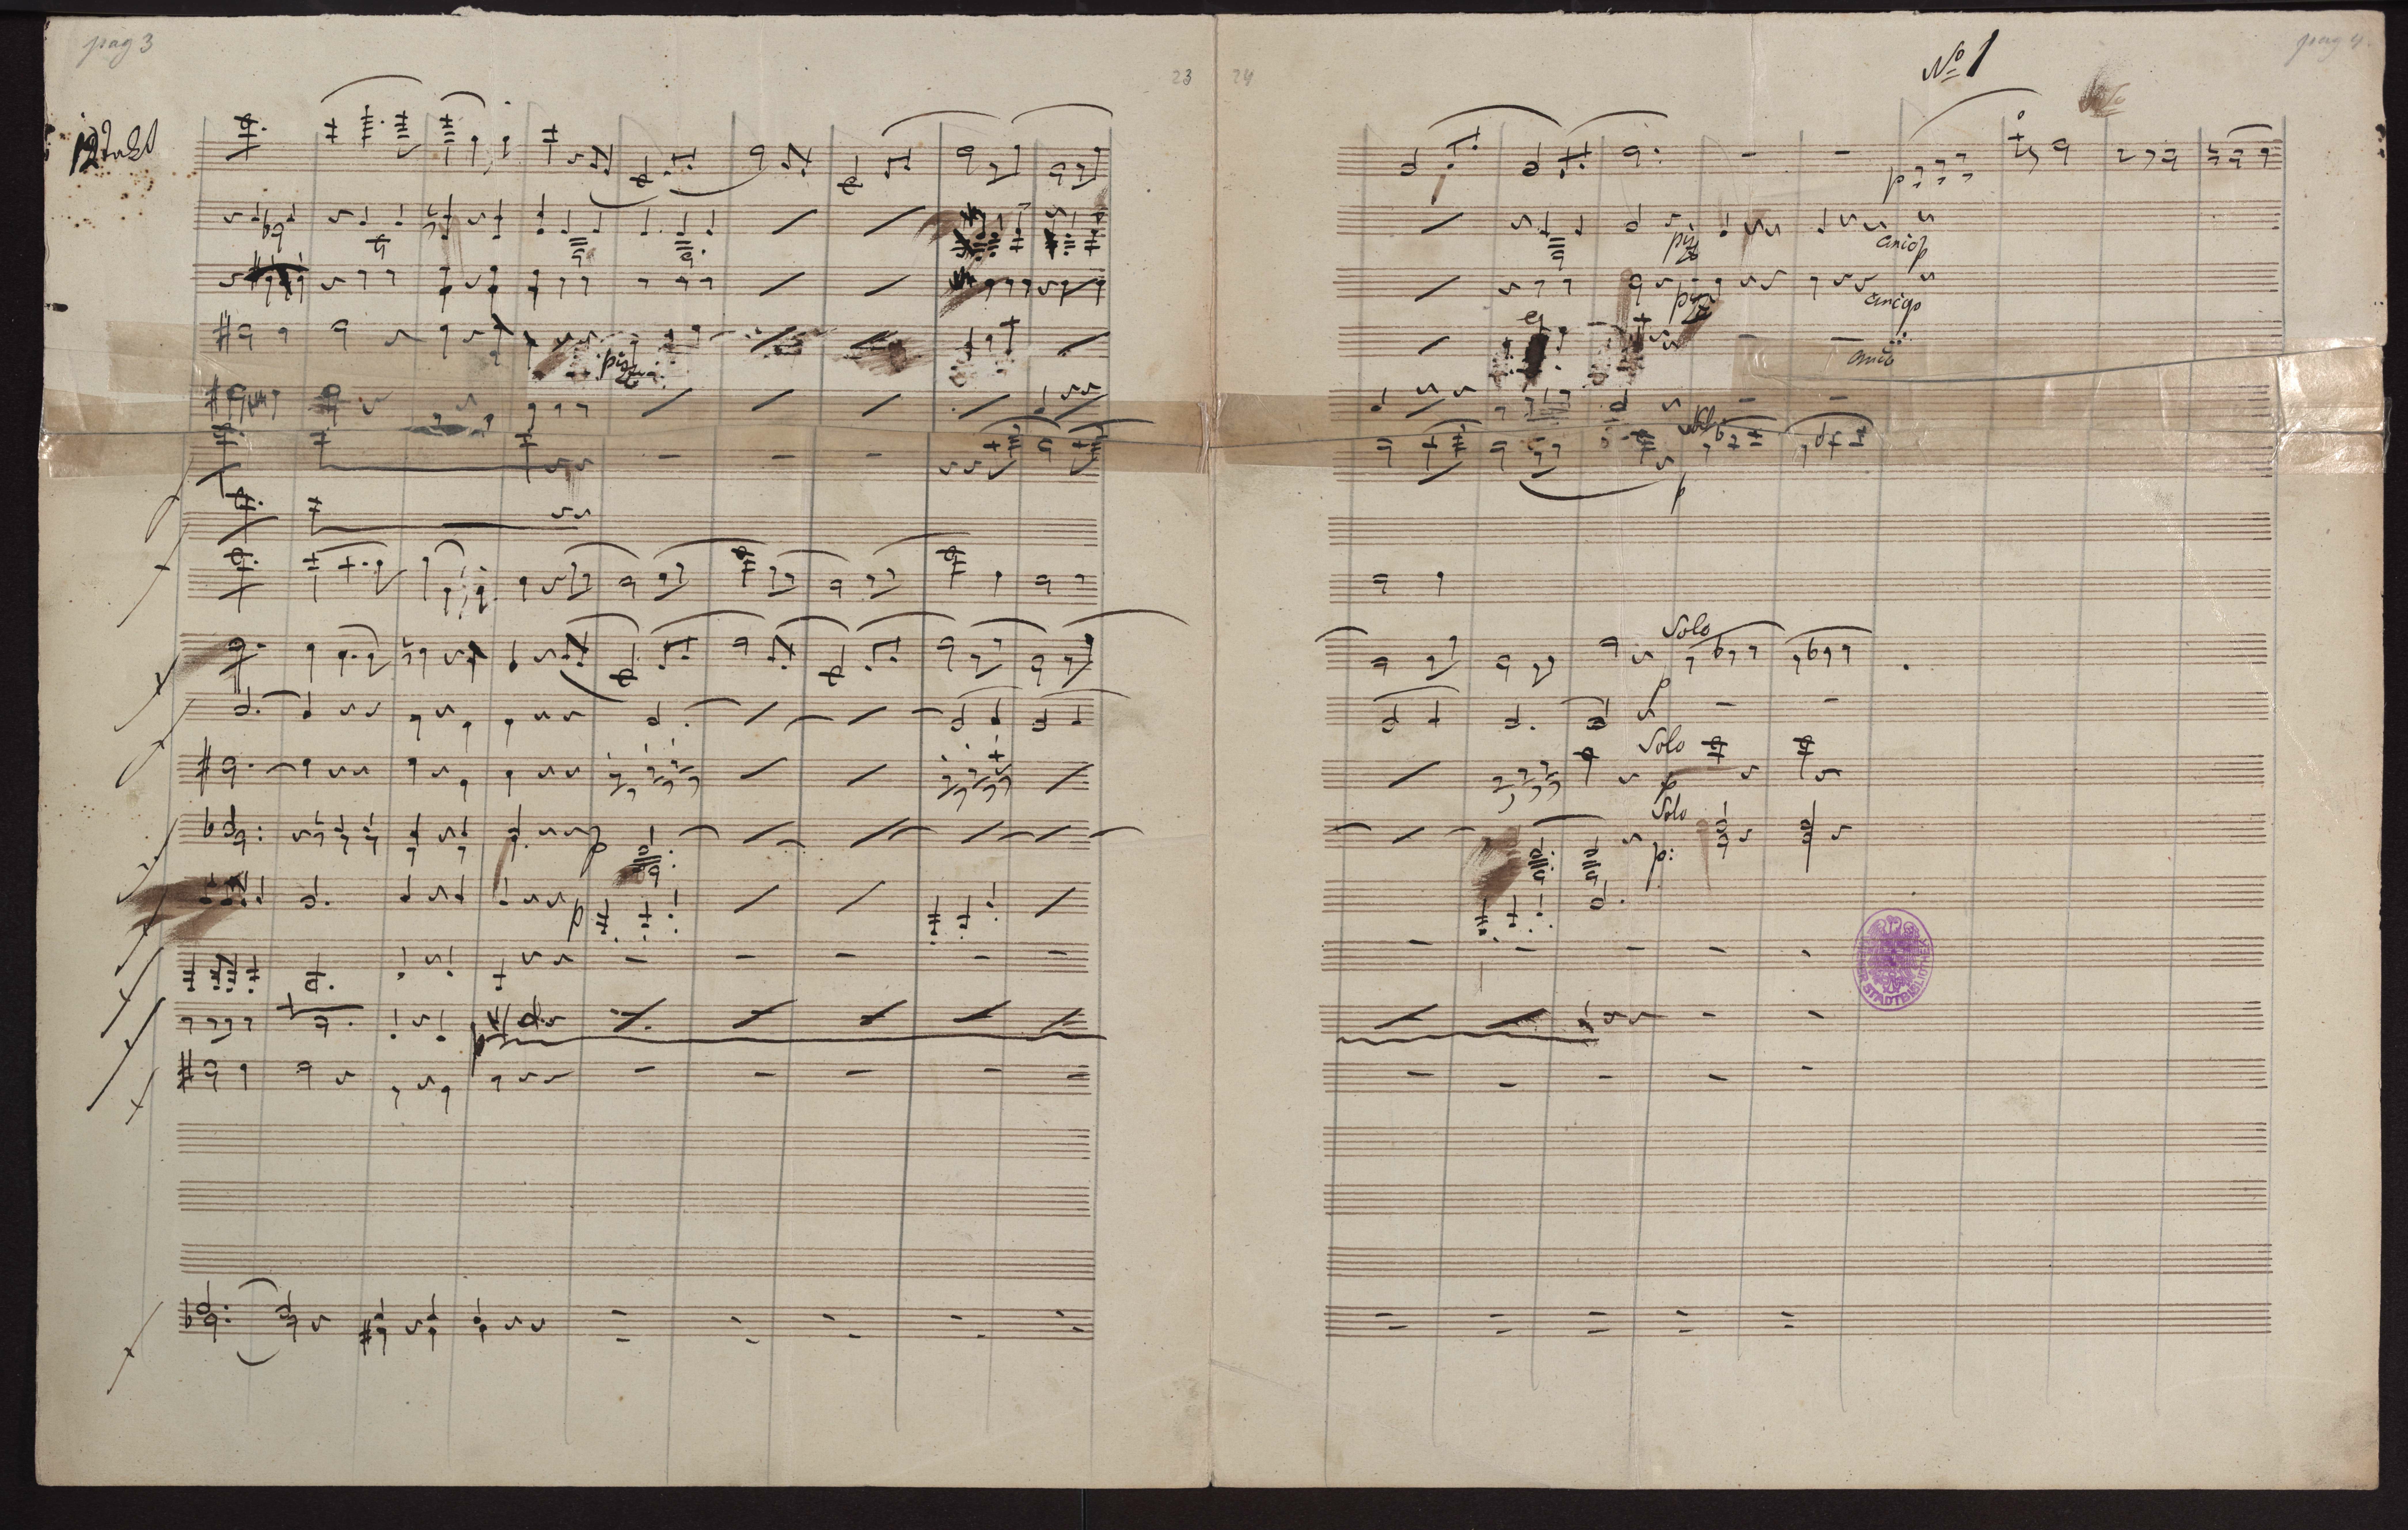 pag 3
23
24
No 1
pag 4.
Solo
pizz
pizz
arco p
arco p
pizz
arco
Solo
p
Solo
p
Solo
p
Solo
p:
p
p
STADTBIBLIOTHEK